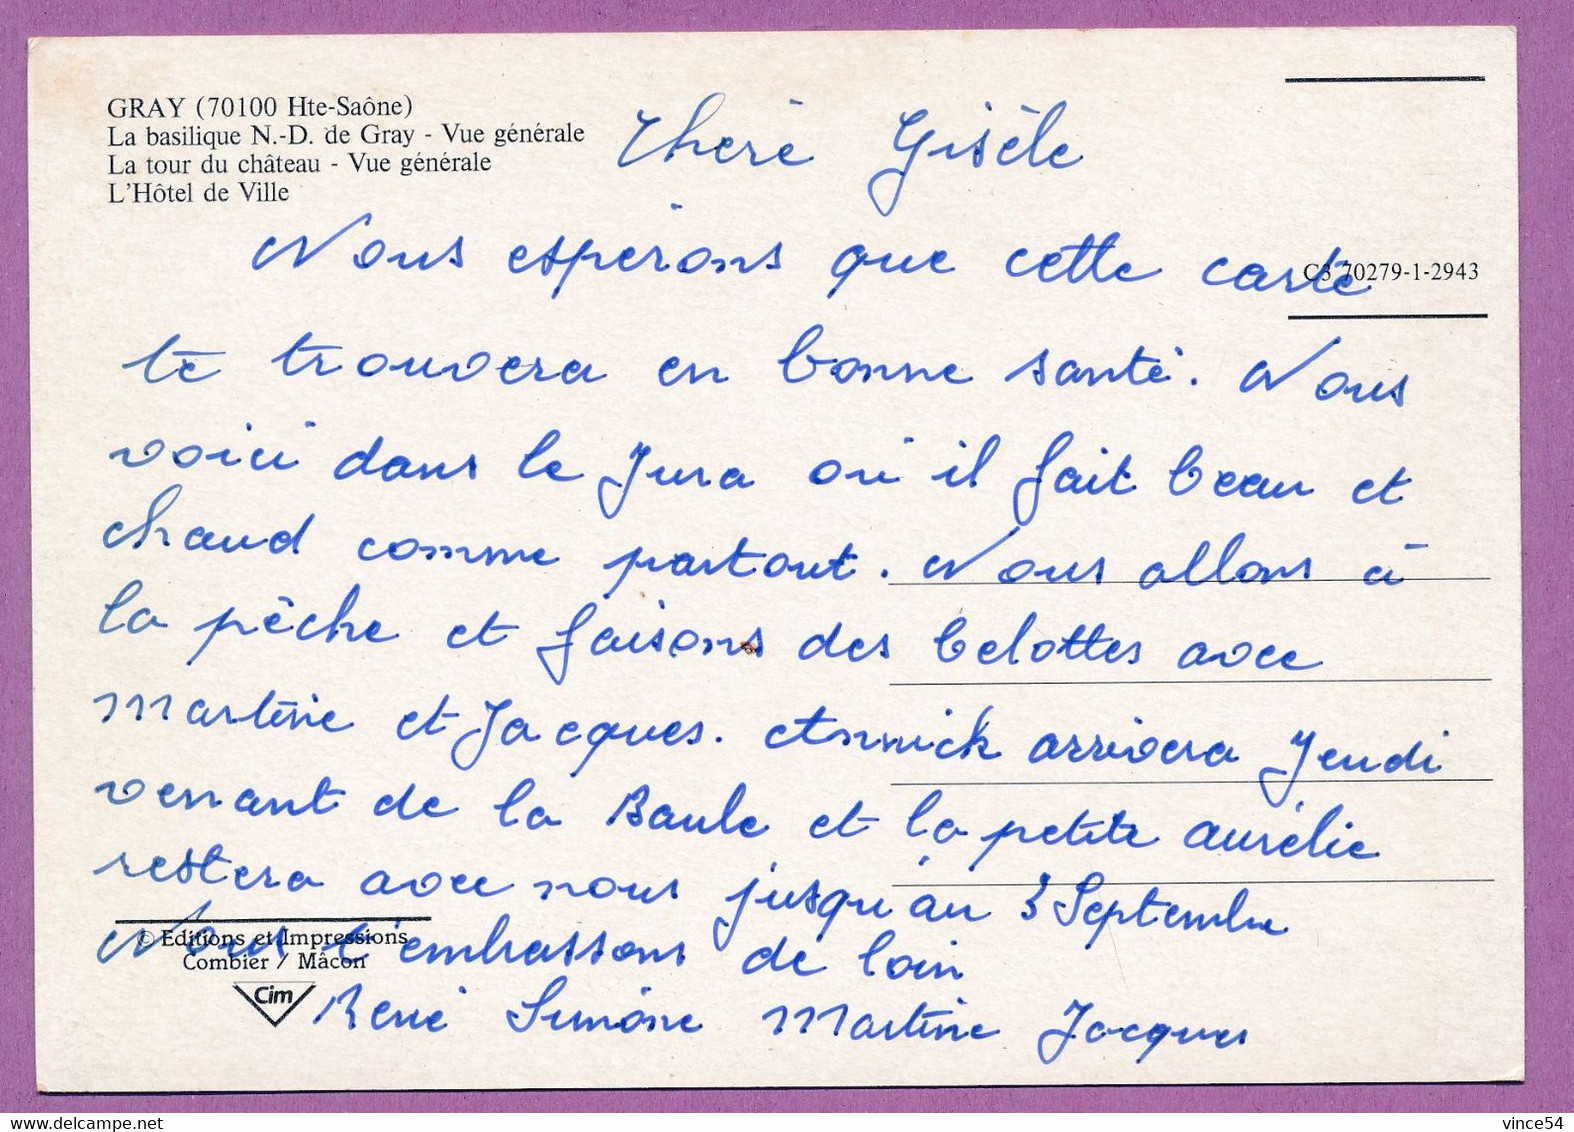 GRAY (70100 Hte-Saône)
La basilique N.-D. de Gray - Vue générale
La tour du château - Vue générale
L'Hôtel de Ville
Chere Gisèle
C3 70279-1-2943
Nous esperons que cette carte
te trouvera en bonne santé. Nous
voici dans le Jura ou il fait beau et
chaud comme partout. Nous allons à
la pêche et faisons des belottes avec
Martine et Jacques. Annick arrivera Jeudi
venant de la Baule et la petite Aurélie
restera avec nous jusqu'au 3 Septembre
Nous t'embrassons de loin
René Simone Martine Jacques
© Editions et Impressions
Combier / Mâcon
Cim
vince54